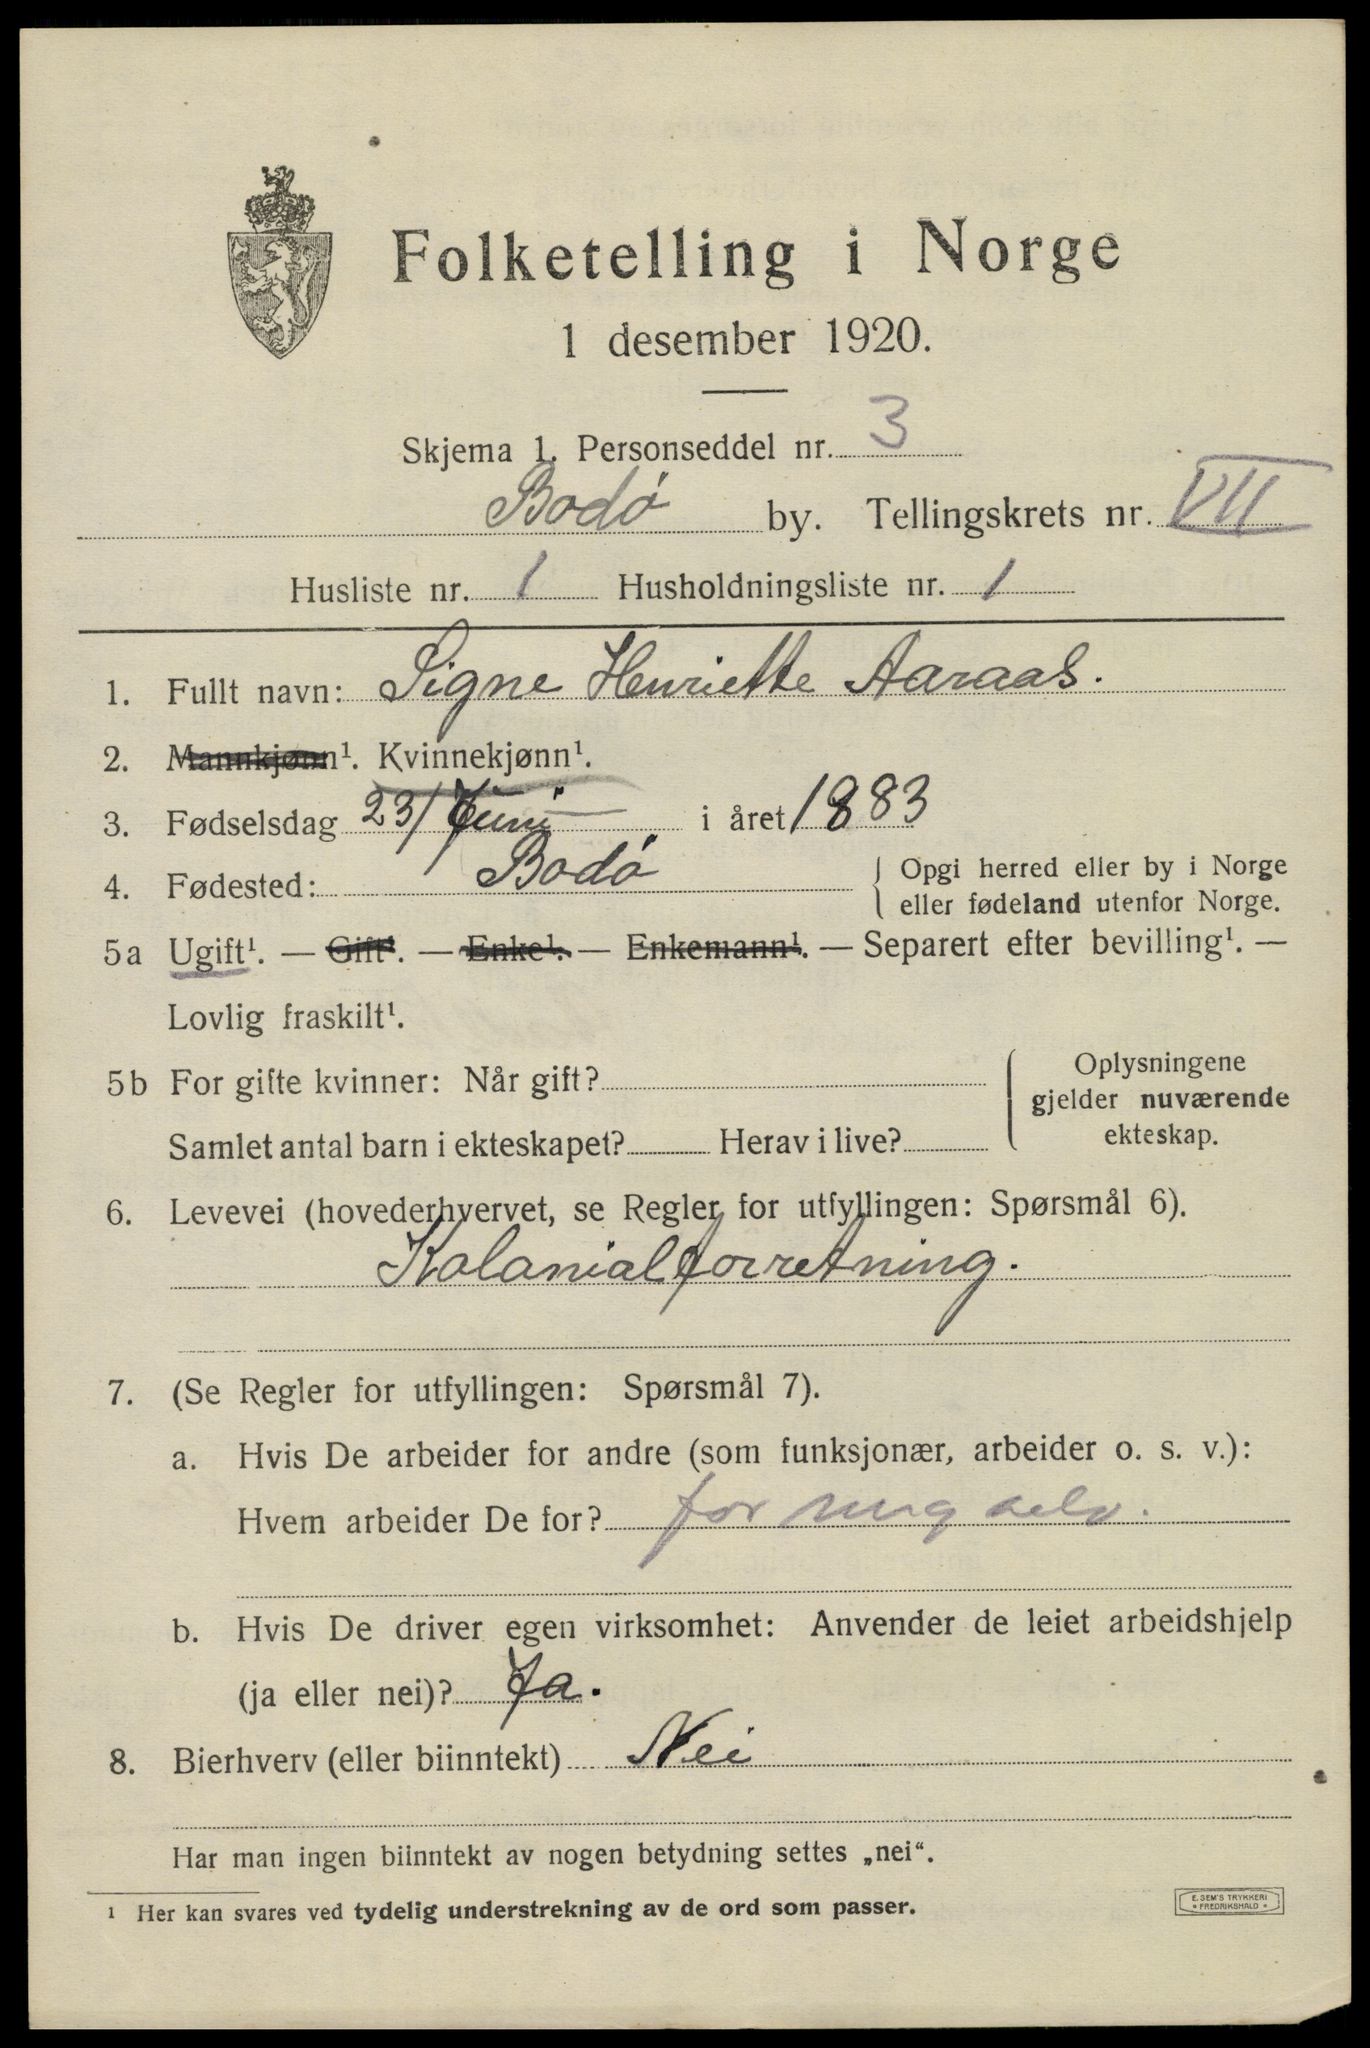 Folketelling i Norge
1 desember 1920.
Skjema 1. Personseddel nr. 3
Bodø by. Tellingskrets nr. VII
Husliste nr. 1 Husholdningsliste nr. 1
1. Fullt navn: Signe Henriette Aaraas.
2. Mannkjønn¹. Kvinnekjønn¹.
3. Fødselsdag 23/ Juni i året 1883
4. Fødested: Bodø { Opgi herred eller by i Norge
eller fødeland utenfor Norge.
5a Ugift¹. — Gift¹. — Enke¹. — Enkemann¹. — Separert efter bevilling¹. —
Lovlig fraskilt¹.
5b For gifte kvinner: Når gift? { Oplysningene
gjelder nuværende
ekteskap.
Samlet antal barn i ekteskapet? Herav i live?
6. Levevei (hovederhvervet, se Regler for utfyllingen: Spørsmål 6).
Kolonialforretning.
7. (Se Regler for utfyllingen: Spørsmål 7).
a. Hvis De arbeider for andre (som funksjonær, arbeider o. s. v.):
Hvem arbeider De for? for mig selv.
b. Hvis De driver egen virksomhet: Anvender de leiet arbeidshjelp
(ja eller nei)? Ja.
8. Bierhverv (eller biinntekt) Nei
Har man ingen biinntekt av nogen betydning settes „nei“.
¹ Her kan svares ved tydelig understrekning av de ord som passer.
E. SEM'S TRYKKERI
* FREDRIKSHALD *